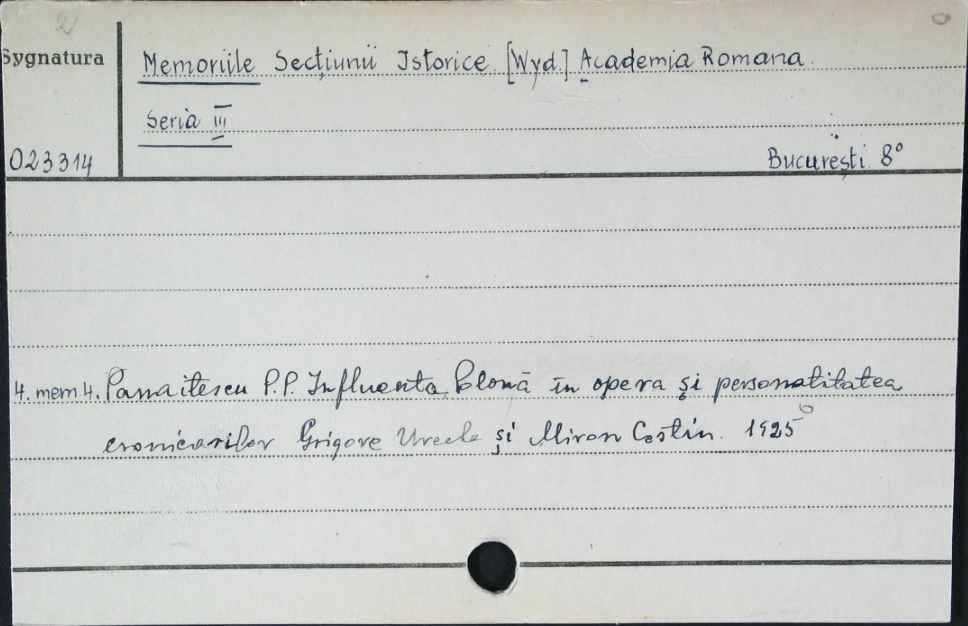 2
Sygnatura
Memoriile Secţiunii Istorice [Wyd.] Academia Romana
Seria III
023314
Bucureşti 8°
4. mem 4. Panaitescu P.P. Influenta Polonă în opera şi personatitatea
cronicarilor Grigore Ureche şi Miron Costin. 1925